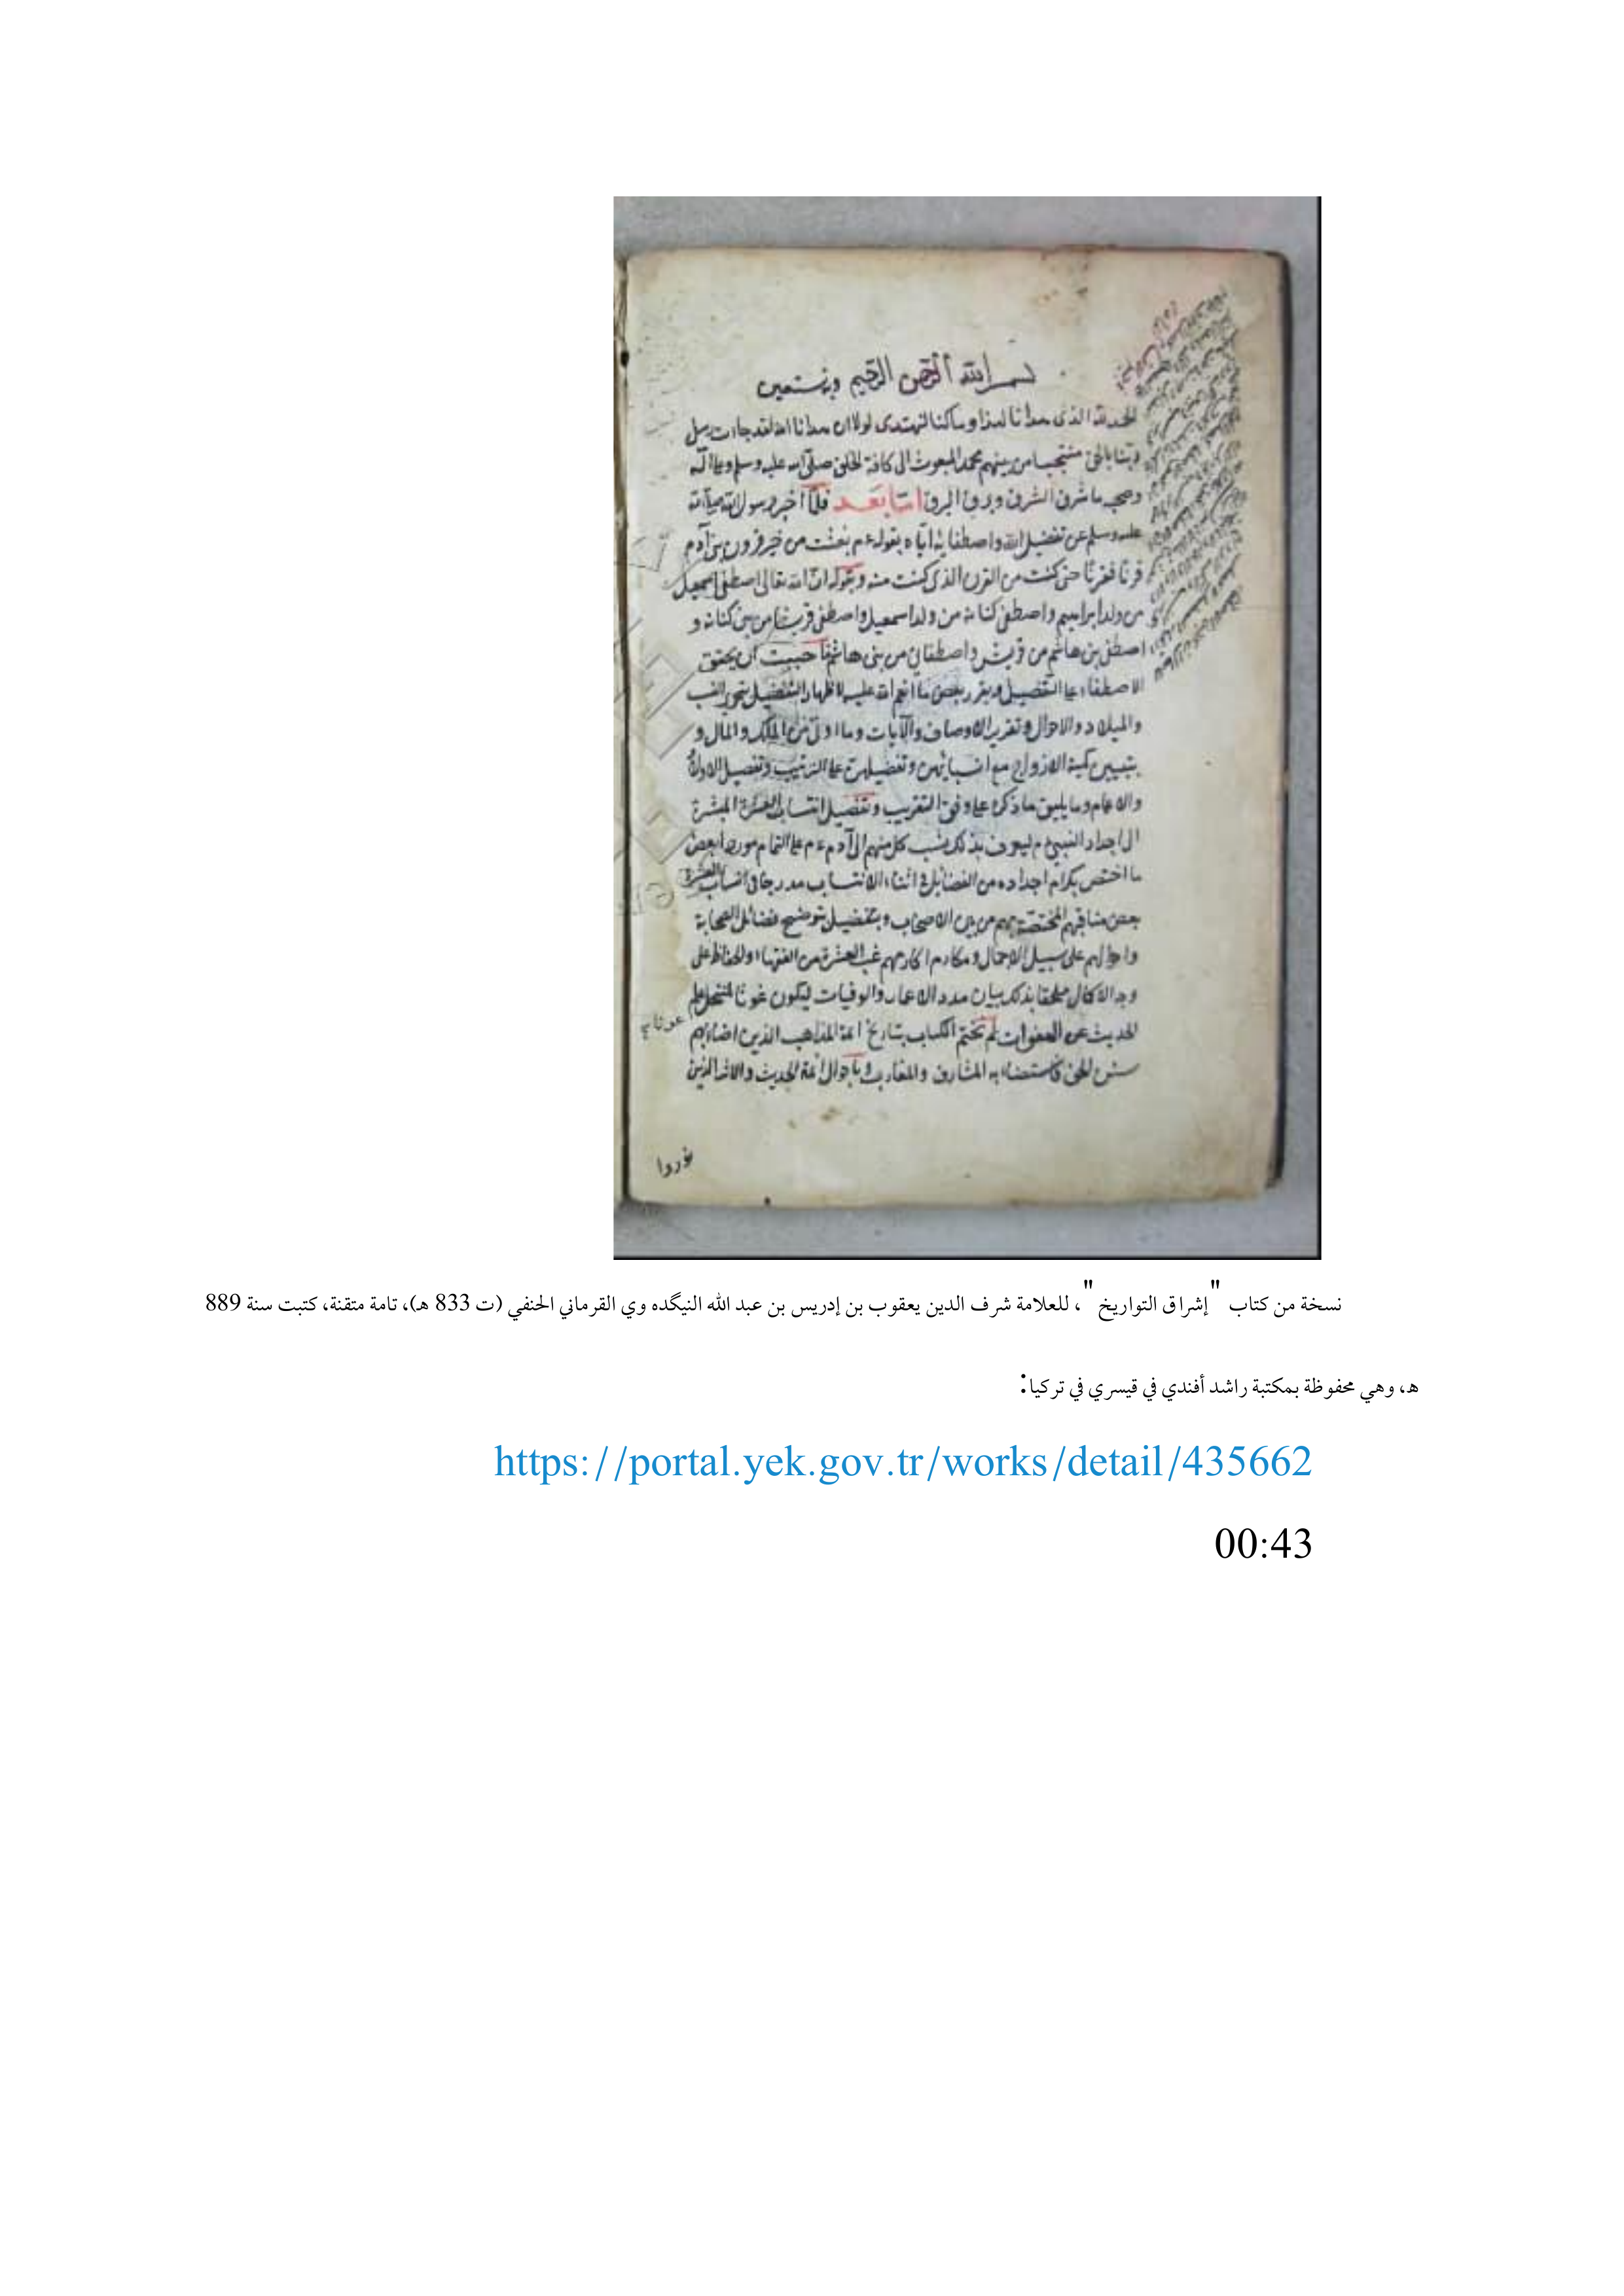 بسم الله الرحمن الرحيم وبه نستعين
الحمد لله الذى هدانا لهذا وما كنا لنهتدى لولا ان هدانا الله لقد جاءت رسل
ربنا بالحق منتجبا من بينهم محمد المبعوث الى كافة الخلق صلى الله عليه وسلم وعلى آله
وصحبه ما شرق الشرق وبرق البرق اما بعد فلما أخبر رسول الله صلى الله
عليه وسلم عن تفضيل الله واصطفايه اياه بقوله عم بعثت من خير قرون بنى آدم
قرنا فقرنا حتى كنت من القرن الذى كنت منه وبقوله ان الله تعالى اصطفى اسمعيل
من ولد ابراهيم واصطفى كنانة من ولد اسمعيل واصطفى قريشا من بنى كنانة و
اصطفى بنى هاشم من قريش واصطفانى من بنى هاشم حببت ان يحقق
الاصطفاء على التفضيل ويقرر بعض ما انعم الله عليه لاظهار التفضيل بتحرير النسب
والميلاد والاحوال وتقرير الاوصاف والآيات وما اوتى من الملك والمال و
بتبيين كمية الازواج مع انسابهن وتفضيلهن على الترتيب وتفصيل الاولاد
والاعمام وما يليق ما ذكره على وفق التقريب وتفصيل انتساب العشرة المبشرة
الى اجداد النبى عم ليعرف بذلك نسب كل منهم الى آدم عم على التمام موردا بعض
ما اختص بكرام اجداده من الفضائل فى اثناء الانتساب مدرجا فى انساب العشرة
بعض مناقبهم المختصة بهم من بين الاصحاب وبتفضيل توضيح فضائل الصحابة
واحوالهم على سبيل الاجمال ومكارم اكارمهم غب العشرة من الفقهاء والحفاظ على
وجه الاكمال ملحقا بذلك بيان مدد الاعمار والوفيات ليكون عونا لمنتحل علم
الحديث عن الهفوات ثم نختم الكتاب بتاريخ ائمة المذاهب الذين اضاء بهم
سنن الحق فاستضاء به المشارق والمغارب وبأحوال ائمة الحديث والاثر الذين
نوروا
نسخة من كتاب "إشراق التواريخ"، للعلامة شرف الدين يعقوب بن إدريس بن عبد الله النيگده وي القرماني الحنفي (ت 833 هـ)، تامة متقنة، كتبت سنة 889
هـ، وهي محفوظة بمكتبة راشد أفندي في قيسري في تركيا:
https://portal.yek.gov.tr/works/detail/435662
00:43